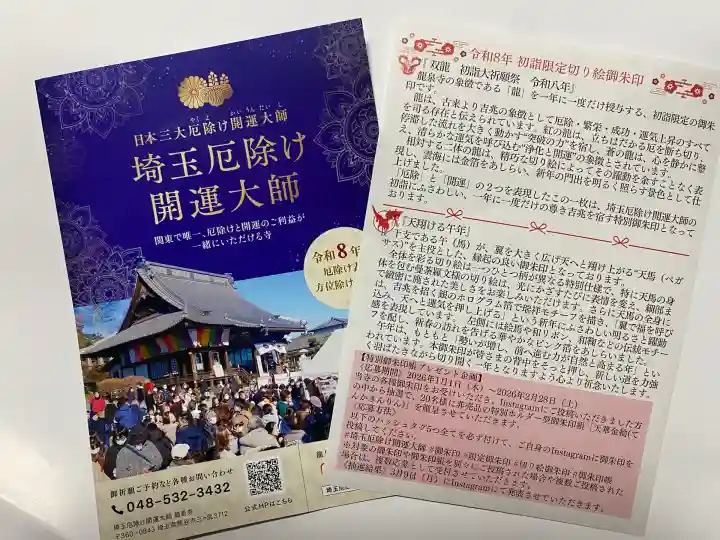 日本三大厄除け開運大師
やくよ かいうんだいし
埼玉厄除け
開運大師
関東で唯一、厄除けと開運のご利益が
一緒にいただける寺
令和8年
厄除け
方位除け
御祈願ご予約など各種お問い合わせ
048-532-3432
公式HPはこちら
埼玉厄除け開運大師 龍泉寺
〒360-0843 埼玉県熊谷市三ヶ尻3712
令和8年 初詣限定切り絵御朱印
『双龍 初詣大祈願祭 令和八年』
龍泉寺の象徴である「龍」を一年に一度だけ授与する、初詣限定の御朱
印です。
龍は、古来より吉兆の象徴として厄除・繁栄・成功・運気上昇のすべて
を司る存在と伝えられています。紅の龍は、立ちはだかる厄を断ち切り、
停滞した流れを大きく動かす“突破の力”を宿し、蒼の龍は、心を静かに整
え、清らかな運気を呼び込む“浄化と開運”の象徴とされています。
相対する二体の龍は、精巧な切り絵によってその躍動を余すことなく表
現し、雲海には金箔をあしらい、新年の門出を明るく照らす景色として仕
上げました。
「厄除」と「開運」の2つを表現したこの一枚は、埼玉厄除け開運大師の
初詣にふさわしい、一年に一度だけの尊き吉兆を宿す特別御朱印となって
おります。
『天翔ける午年』
干支である午（馬）が、翼を大きく広げ天へと翔け上がる“天馬（ペガ
サス）”を主役とした、縁起の良い御朱印となっております。
全体を彩る切り絵は一つひとつ柄が異なる特別仕様で、特に天馬の身
体を包む曼荼羅文様の切り絵は、光にかざすたびに表情を変え、細部ま
で緻密に施された美しさをお楽しみいただけます。さらに天馬の全身に
は、吉兆を招く銀のホログラム箔で龍祥モチーフを描き、「翼で福を呼び
込み、天へと運気を押し上げる」という新年にふさわしい明るさと躍動
感を表現しています。 左側には絵馬や和リボン、和鞠などの伝統モチー
フを配し、新春の訪れを告げる華やかなピンク箔をあしらいました。
午年は、もともと「勢いが増し、前へ進む力が自然と高まる年」とい
われています。本御朱印が皆さまの背中をそっと押し、新しい道を力強
く羽ばたきながら切り開く一年となりますよう心より祈念いたします。
【特別御朱印帳プレゼント企画】
〈応募期間〉2026年1月1日（木）～2026年2月28日（土）
当寺の各種御朱印をお受けいただき、Instagramにご投稿いただきました方
の中から抽選で、20名様に非売品の特別ホルダー型御朱印帳「天華金輪(て
んかきんりん)」を贈呈させていただきます。
〈応募方法〉
以下のハッシュタグ5つ全てを必ず付けて、ご自身のInstagramに御朱印を
投稿してください。
#埼玉厄除け開運大師 #御朱印 #限定御朱印 #切り絵御朱印 #御朱印帳
※対象の御朱印や御朱印帳を別々にご投稿された場合や複数ご投稿された
場合は、複数応募として受付させていただきます。
〈抽選結果〉3月9日（月）にInstagramにて発表させていただきます。